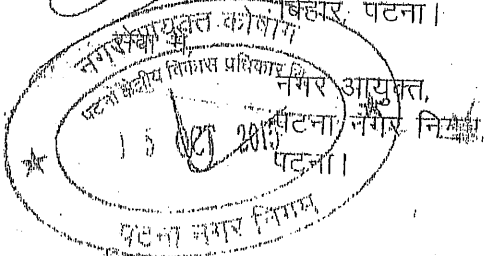 बिहार, पटना।
नगर आयुक्त कोषांग
पटना क्षेत्रीय विकास प्राधिकार
सेवा में
नगर आयुक्त,
15 OCT 2015
पटना नगर निगम,
पटना।
पटना नगर निगम